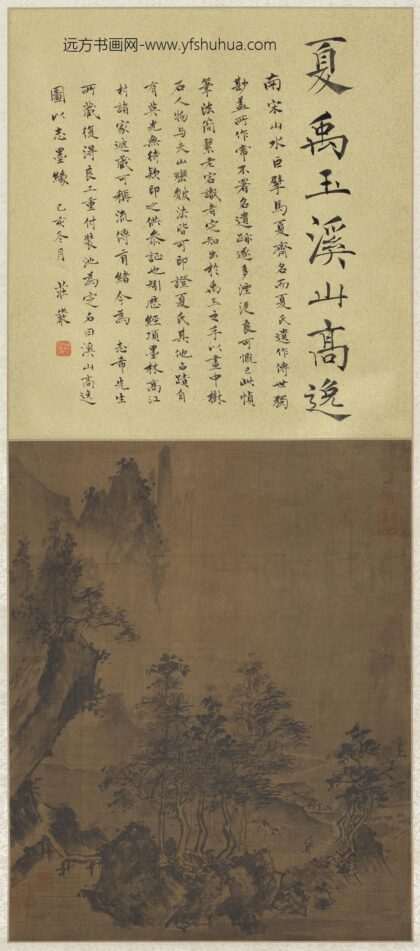 远方书画网-www.yfshuhua.com
夏禹玉溪山高逸
南宋山水巨擘馬夏齊名而夏氏遺作傳世獨
尠蓋所作常不署名遺跡遂多湮沒良可慨已此幀
筆法簡絜老宮識者定知出於禹玉之手以畫中樹
石人物与天山巒皴法皆可印證夏氏其他名蹟自
有英光無待款印之供參証也囿歷經項墨林高江
村諸家遞藏可稱流傳有緒今為志希先生
所藏復得良工重付裝池為定名曰溪山高逸
圖以志墨緣己亥冬月莊嚴